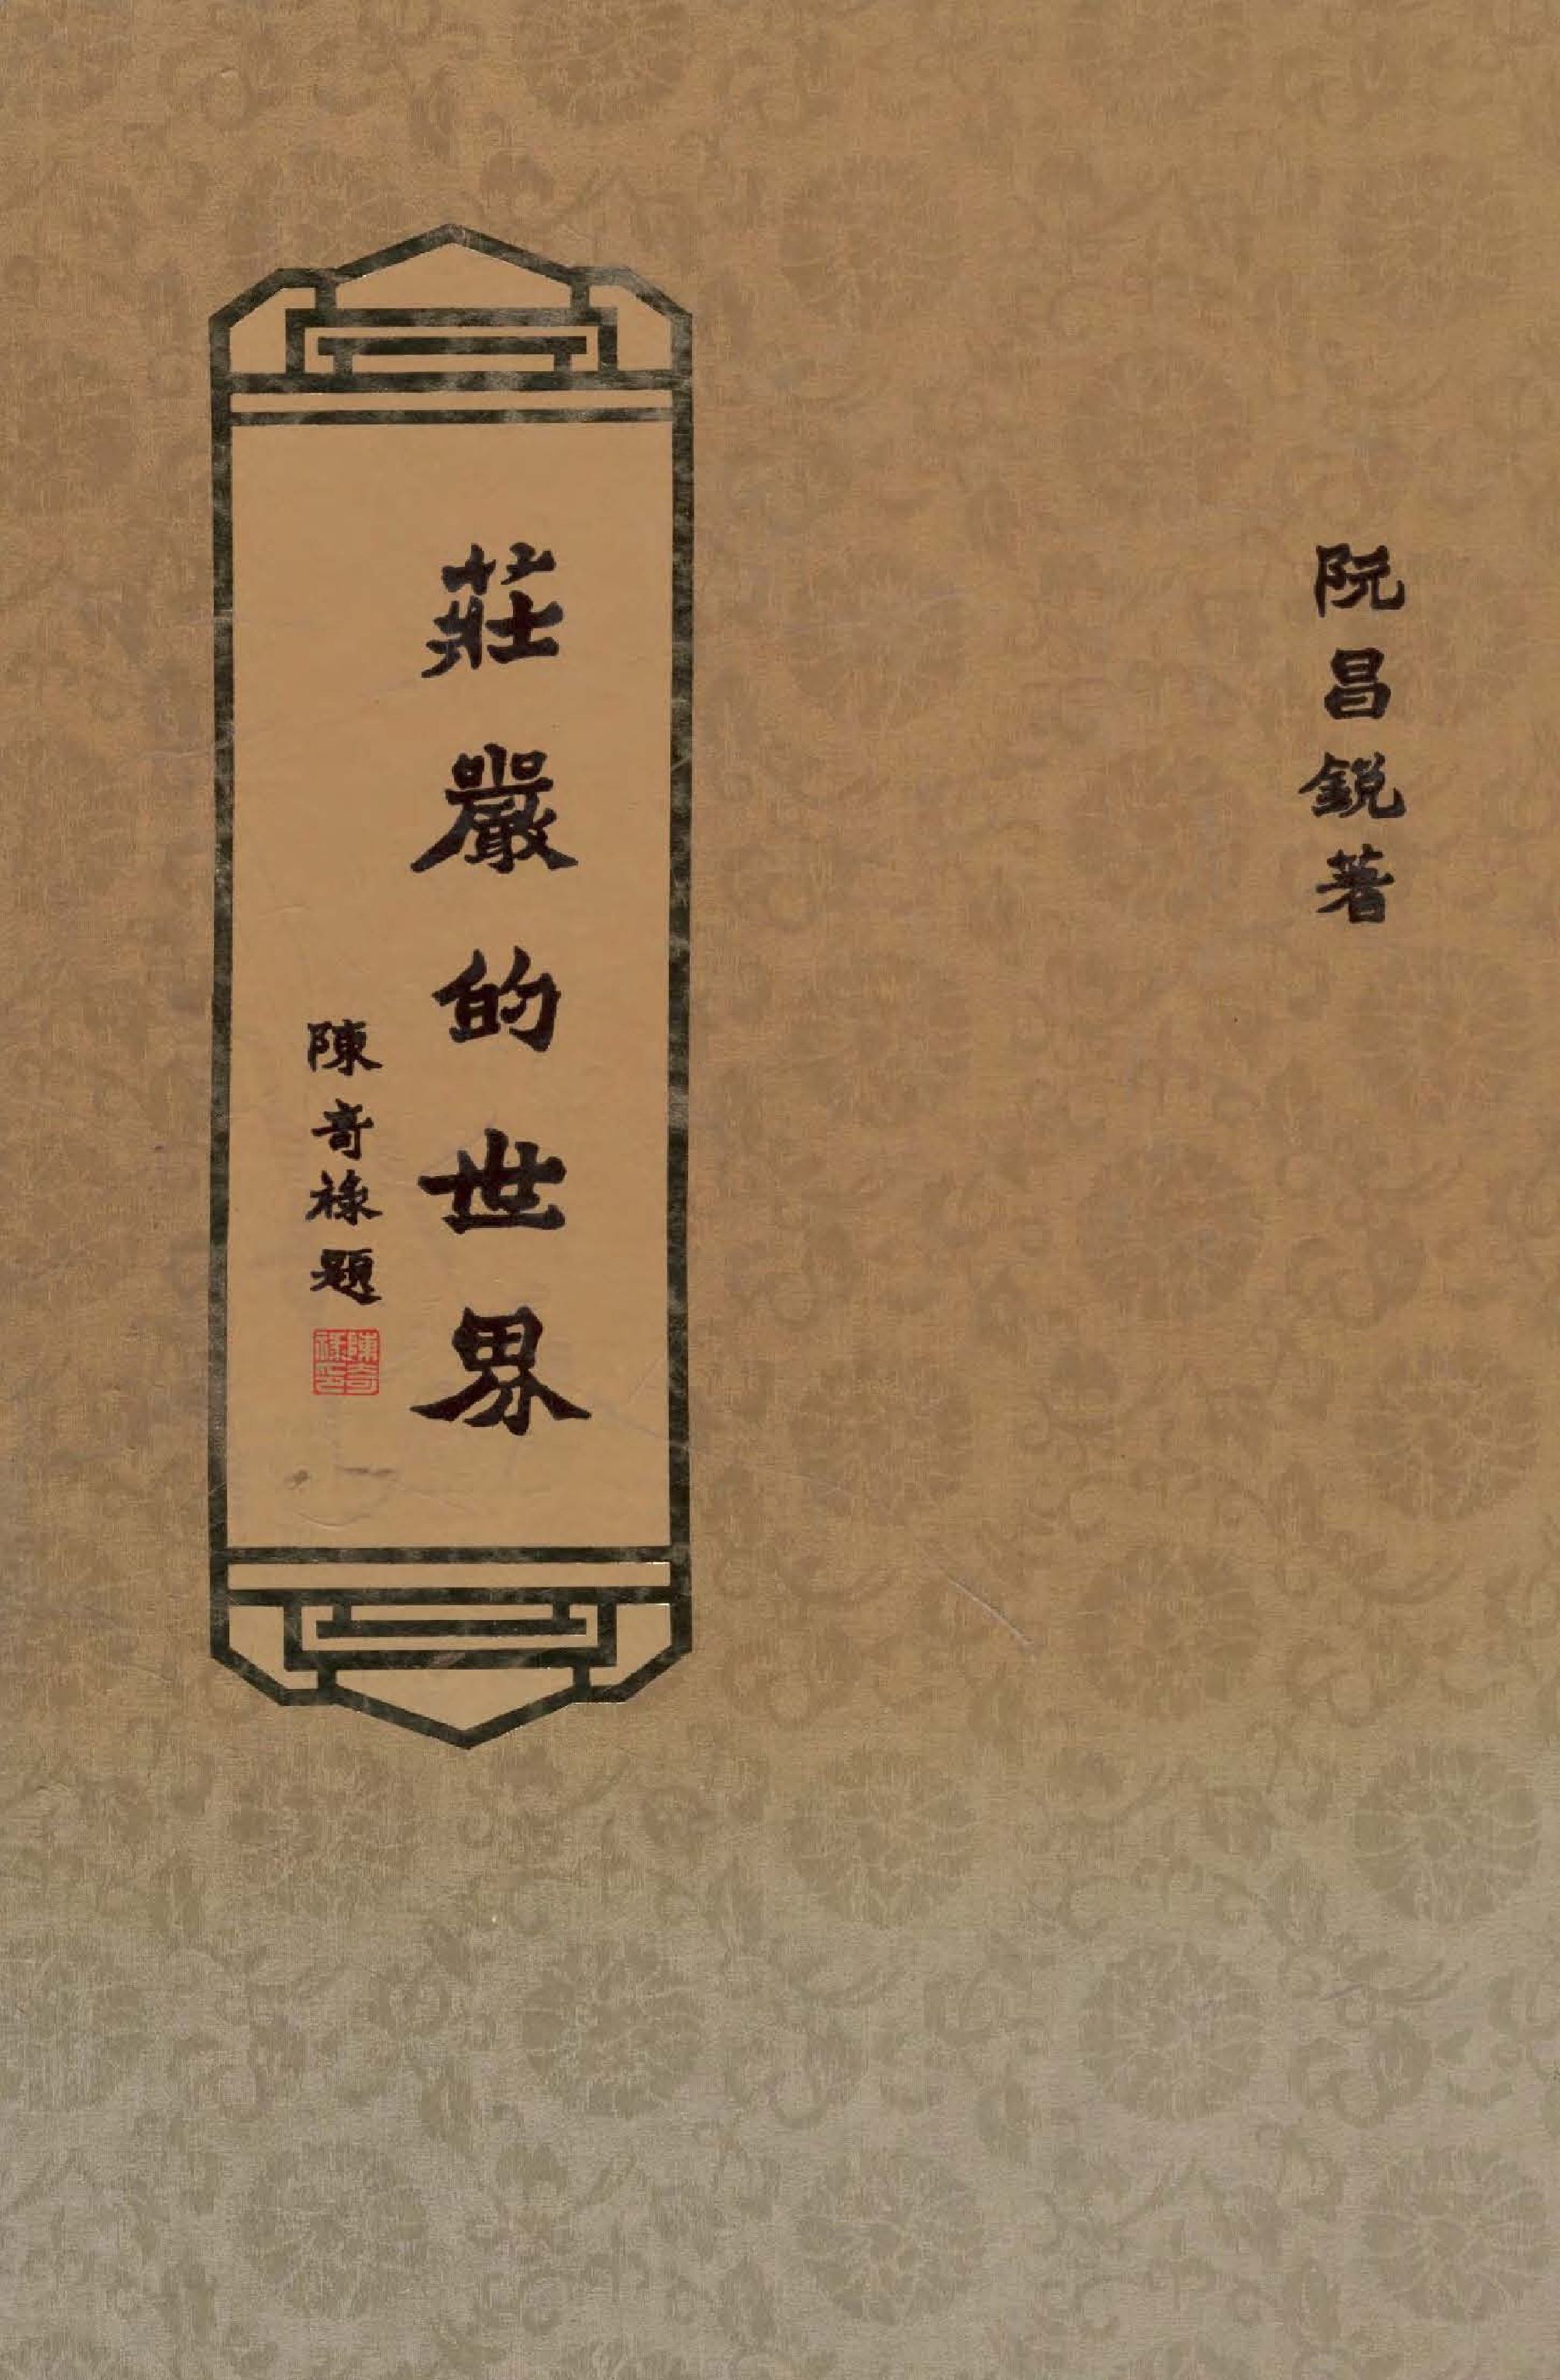 阮昌銳著
莊嚴的世界
陳奇祿題
陳奇祿印